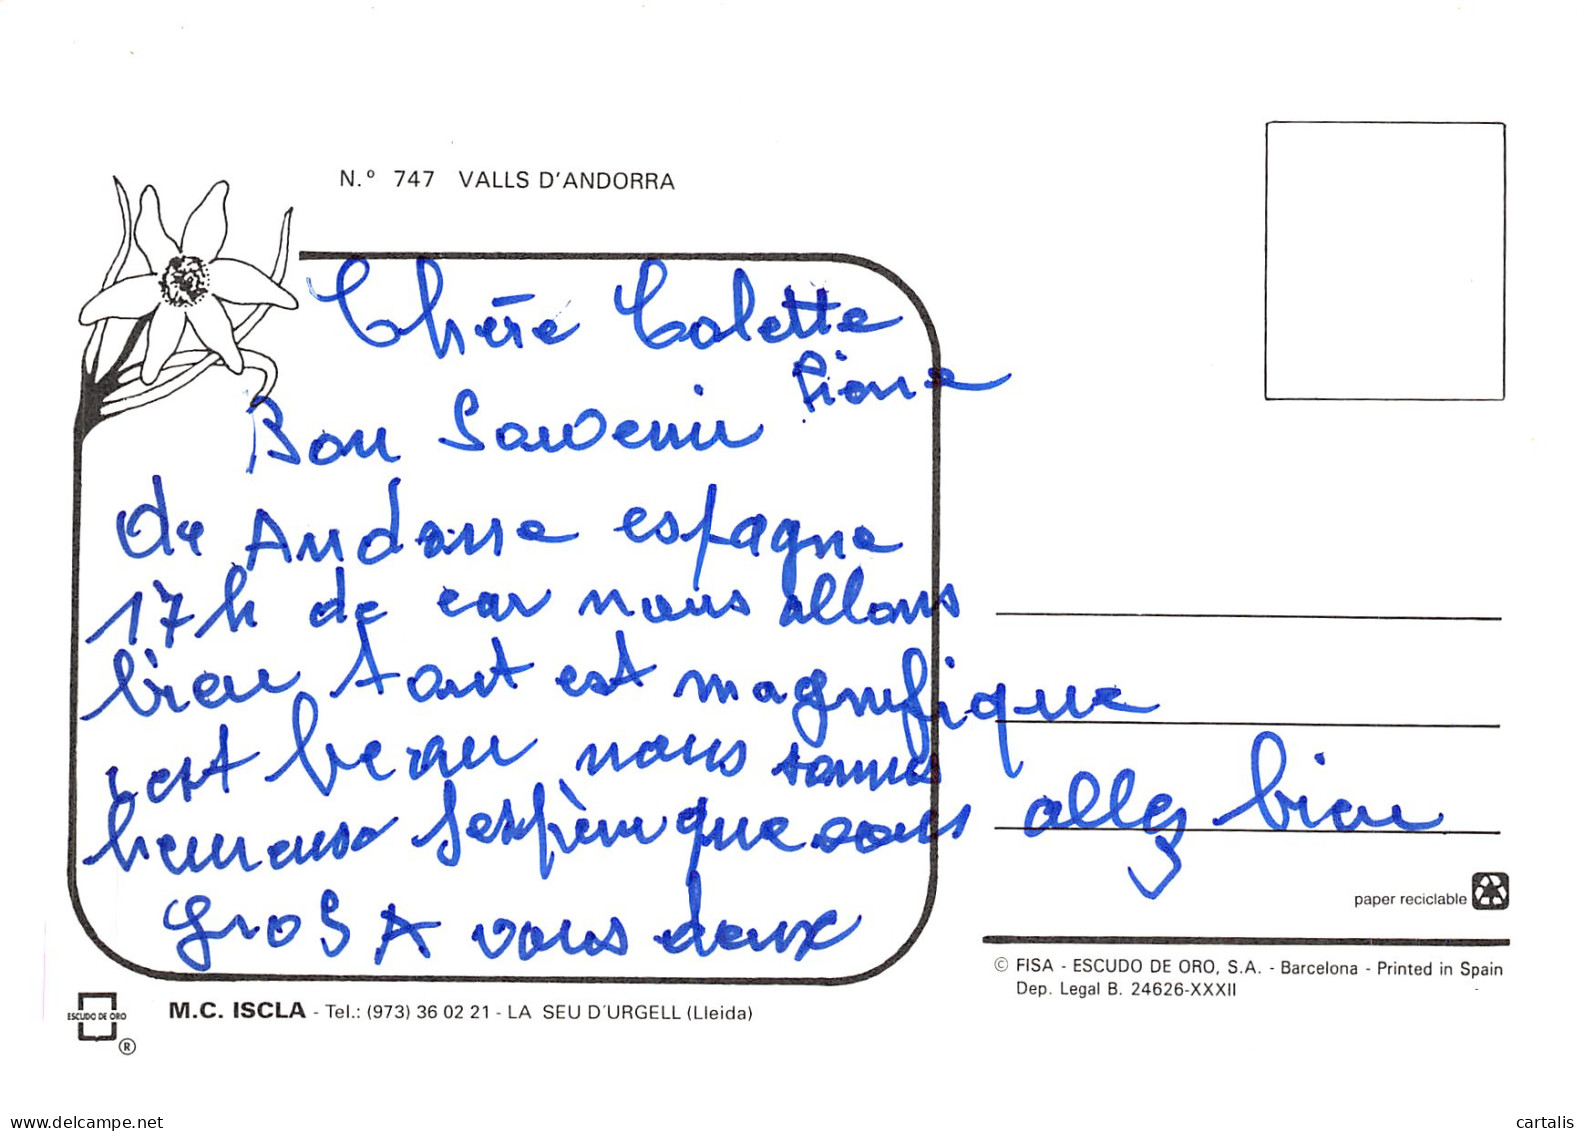 N.º 747 VALLS D'ANDORRA
Chère Colette
Pierre
Bon Souvenir
de Andorre espagne
17h de car nous allons
bien tout est magnifique
c est beau nous sommes
heureuse Jespère que vous allez bien
groS A vous deux
paper reciclable
© FISA - ESCUDO DE ORO, S.A. - Barcelona - Printed in Spain
Dep. Legal B. 24626-XXXII
ESCUDO DE ORO
®
M.C. ISCLA - Tel.: (973) 36 02 21 - LA SEU D'URGELL (Lleida)
www.delcampe.net
cartalis